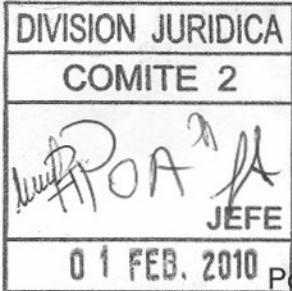 DIVISION JURIDICA
COMITE 2
JEFE
01 FEB. 2010